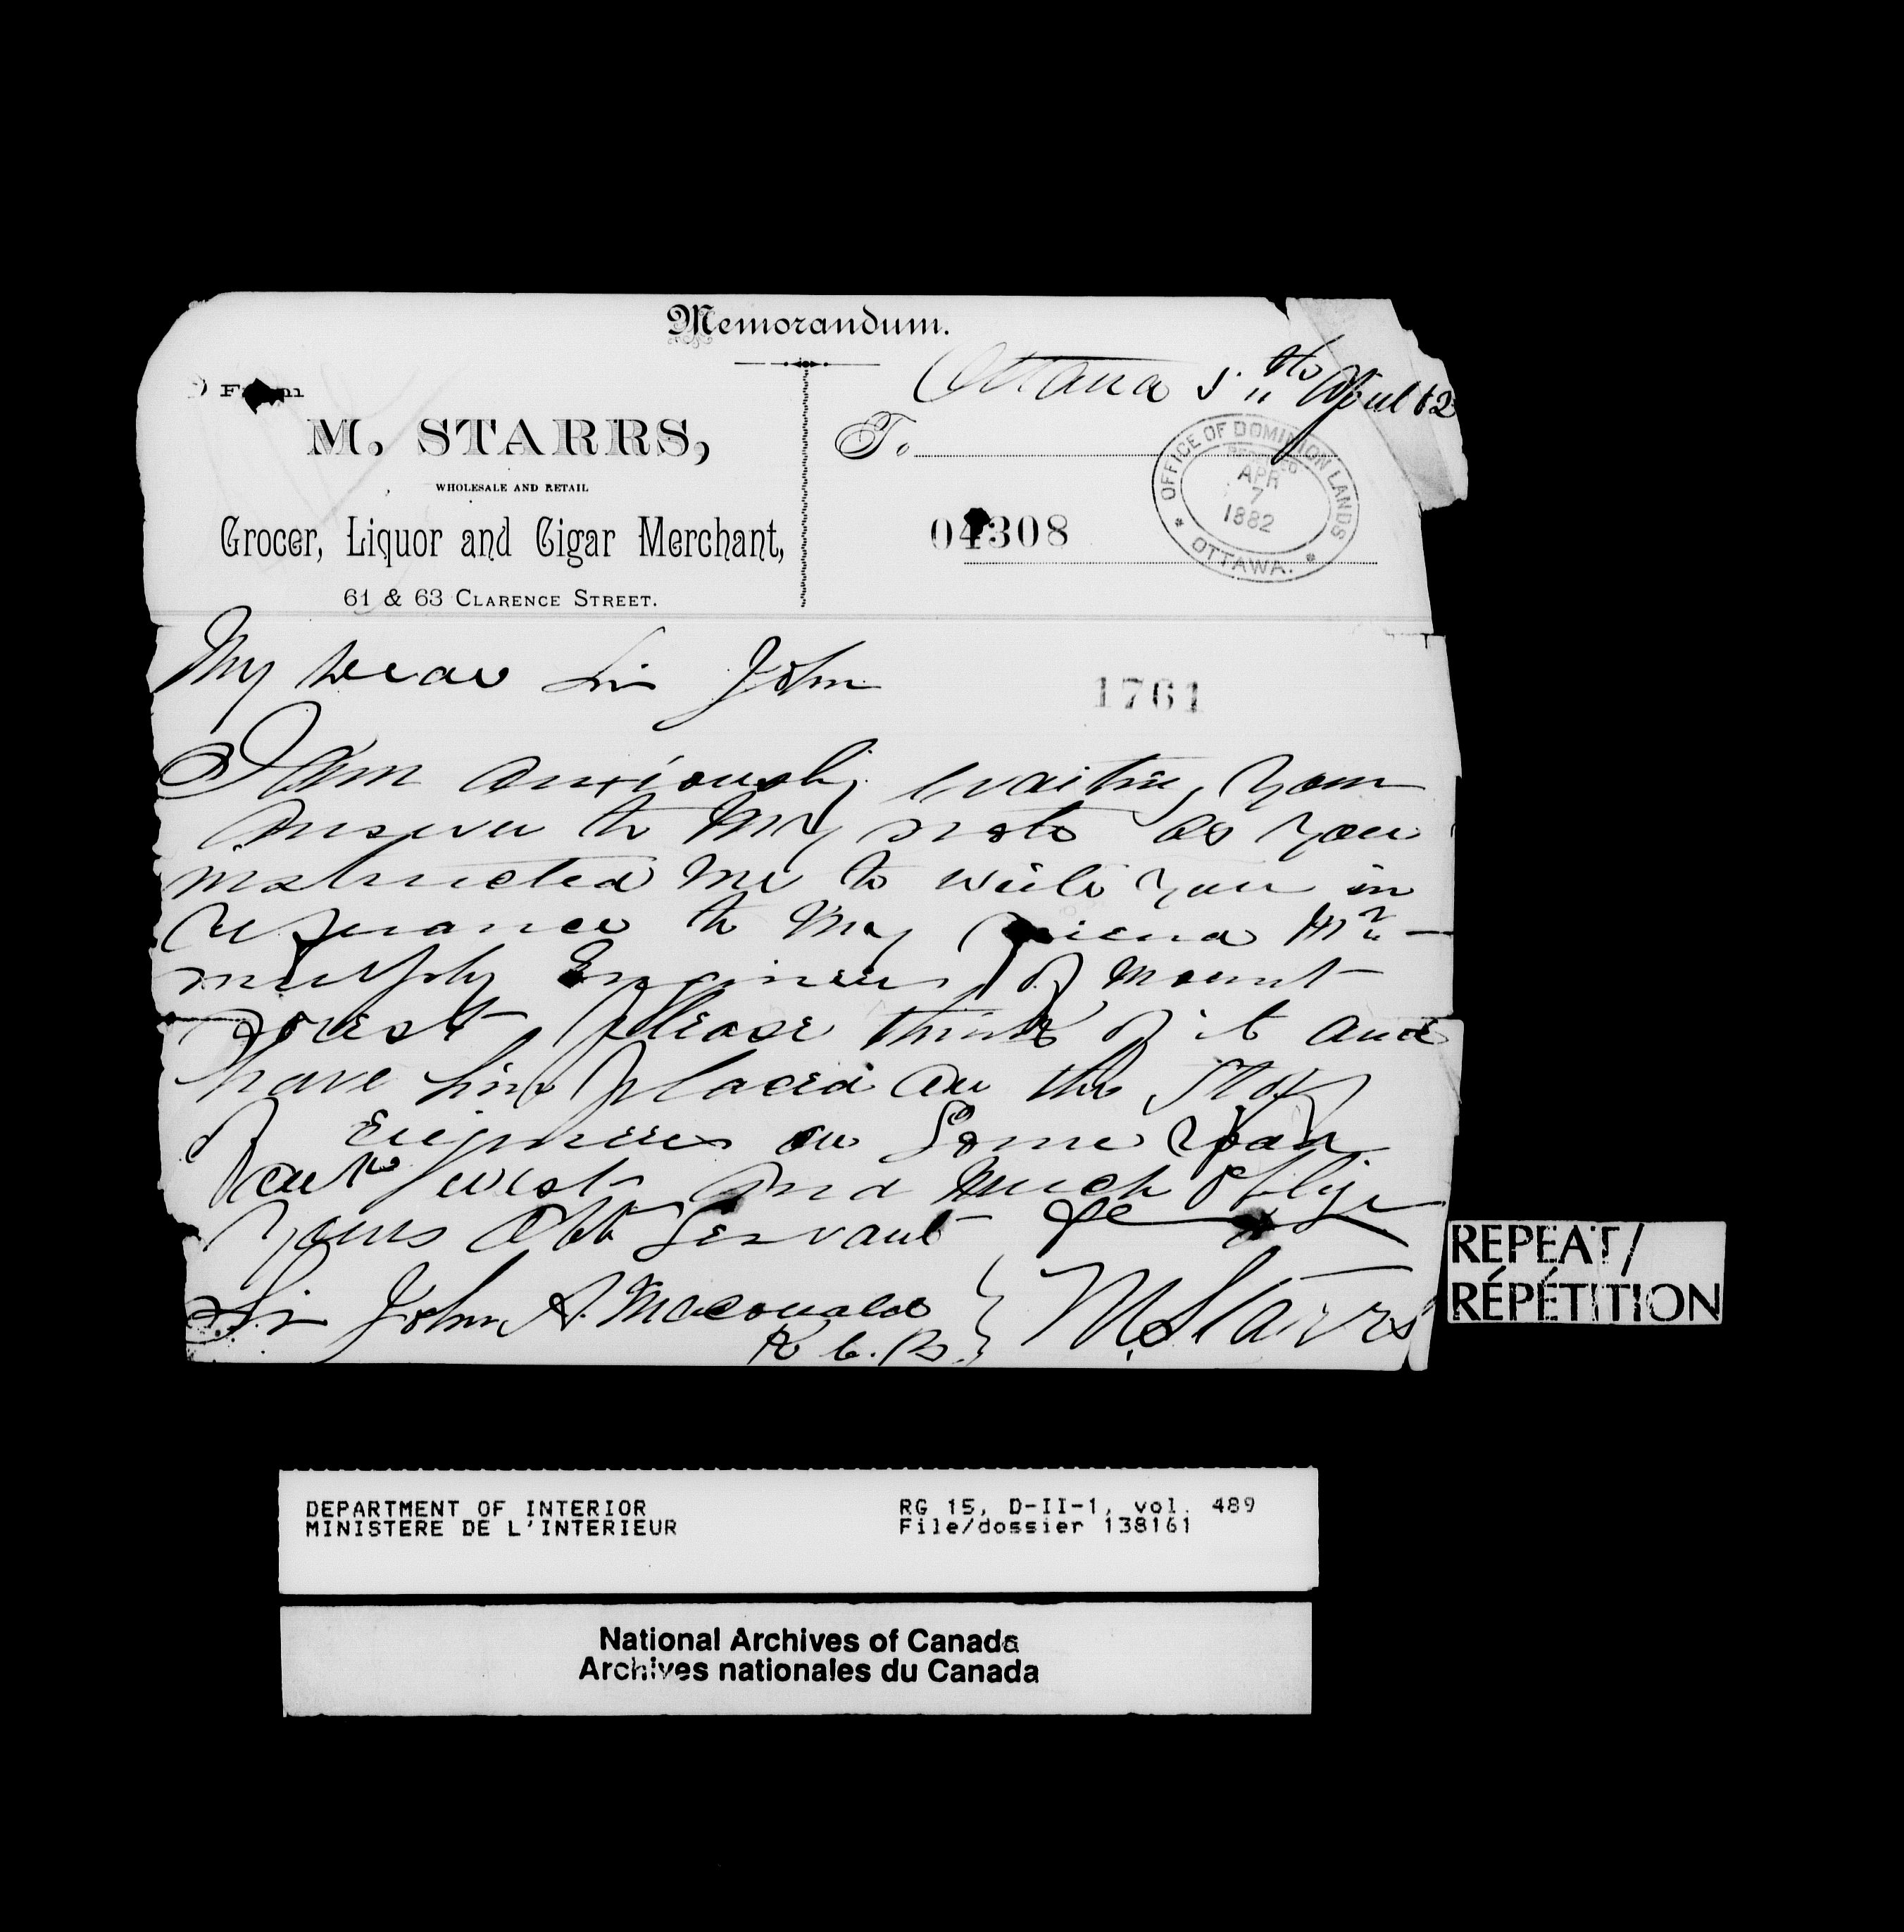 Memorandum.
Ottawa 5th April 82
From
M. STARRS,
WHOLESALE AND RETAIL
Grocer, Liquor and Cigar Merchant,
61 & 63 CLARENCE STREET.
To
OFFICE OF DOMINION LANDS
RECEIVED
APR
7
1882
OTTAWA.
04308
My dear Sir John
1761
I am anxiously waiting your
answer to my note as you
instructed me to write you in
referance to my friend Mr
Murphy Engineer of Mount
Forest please think of it and
have him placed on the Staf
of Engineers on Some Road
west and much oblige
yours Obt Servant
Sir John A. Macdonald
K C. B.
M. Starrs
REPEAT/
RÉPÉTITION
DEPARTMENT OF INTERIOR
MINISTERE DE L'INTERIEUR
RG 15, D-II-1, vol. 489
File/dossier 138161
National Archives of Canada
Archives nationales du Canada